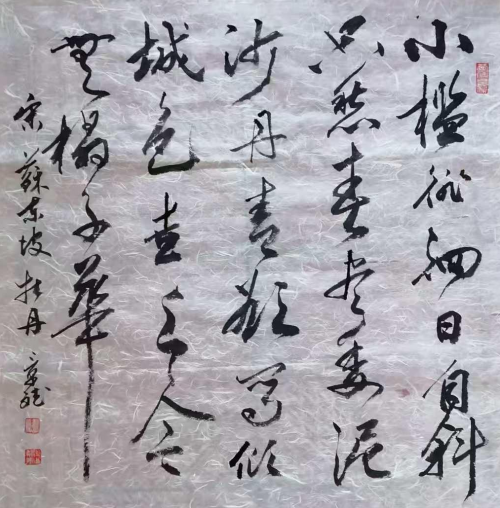 小檻徘徊日自斜
只愁春尽委泥
沙丹青欲寫傾
城色世上今
無楊子華
宋蘇東坡牡丹